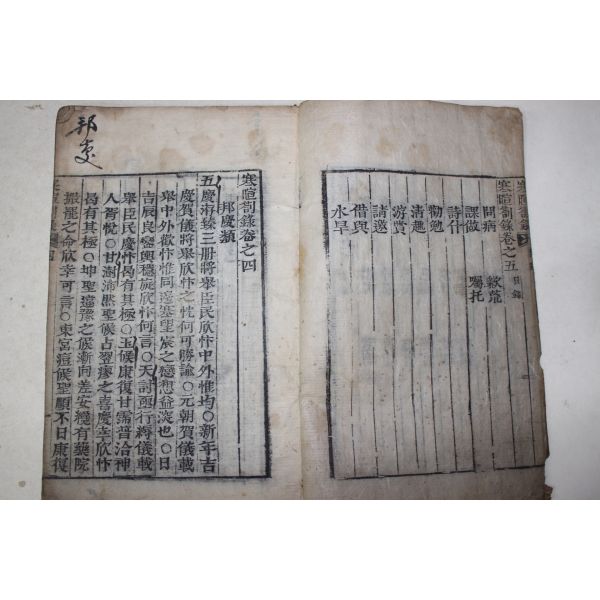 寒暄箚錄卷之五 目錄
問病
課做 囑托
詩什
勸勉
清趣
游賞
請邀
借與
水旱
邦慶
寒暄箚錄卷之四
邦慶類
五慶 三 將舉臣民欣忭中外惟均〇新年吉
慶賀儀將舉欣忭之忱何可勝諭〇元朝賀儀載
舉中外歡忭惟同邊塞望宸之戀想益 也〇日
吉辰良鑾輿穩旋欣忭何言〇天討亟行縟儀載
舉臣民慶忭曷有其極〇玉候康復甘霈普洽神
人胥悅〇甘澍沛然聖候占翌瘳之喜慶幸欣忭
曷有其極〇坤聖違豫之候漸向差安纔有藥院
撤罷之命欣幸可言〇東宮痘候聖順不日康復